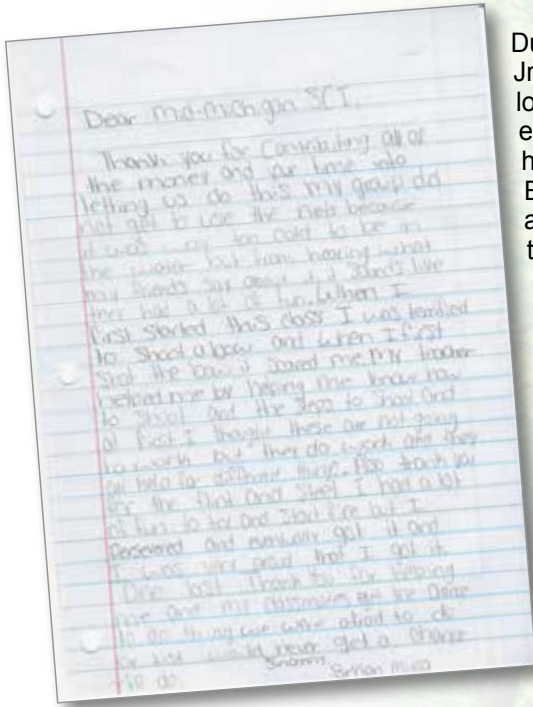 Dear Mid-Michigan SCI,
Thank you for Contributing all of
the money and our time into
letting us do this my group did
not get to use the nets because
it was way too cold to be in
the water but from hearing what
my friends say about it sounds like
they had a lot of fun. When I
first started this class I was terrified
to shoot a bow and when I first
shot the bow it scared me my teacher
helped me by helping me know how
to shoot and the steps to shoot and
at first I thought these are not going
to work but they do work and they
all help for different things. Also thank you
for the flint and steel I had a lot
of fun to try and start fire but I
persevered and eventually got it and
I was very proud that I got it.
One last thank you for helping
me and my classmates get the chance
to do things we were afraid to do
or else would never get a chance
to do.
Du
Jr
lo
e
h
E
a
t